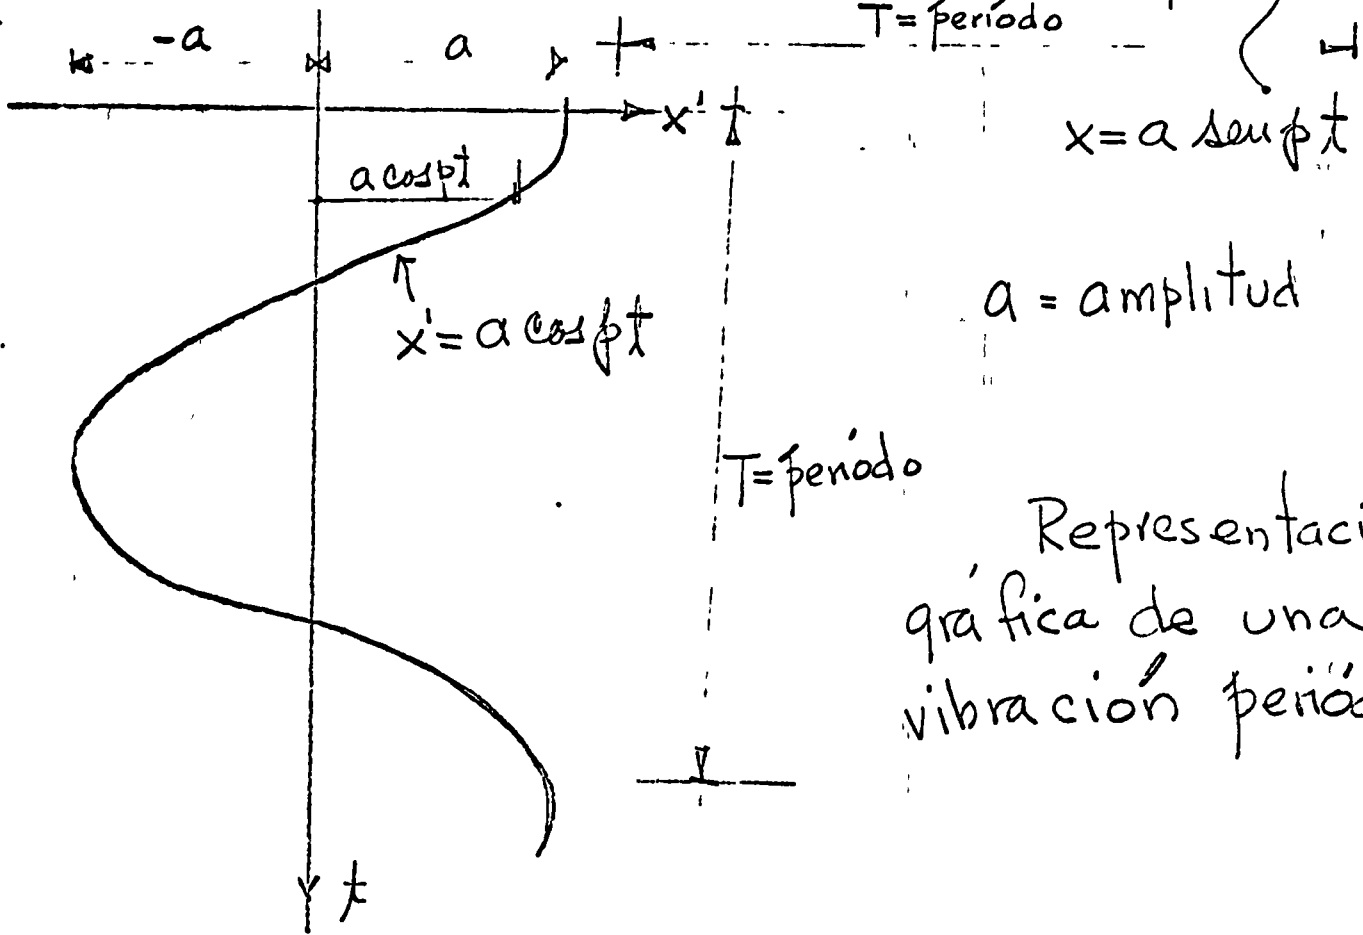 T = período
-a
a
x'
x = a sen pt
a cos pt
a = amplitud
x' = a cos pt
T = período
Representaci
gráfica de una
vibración perió
t